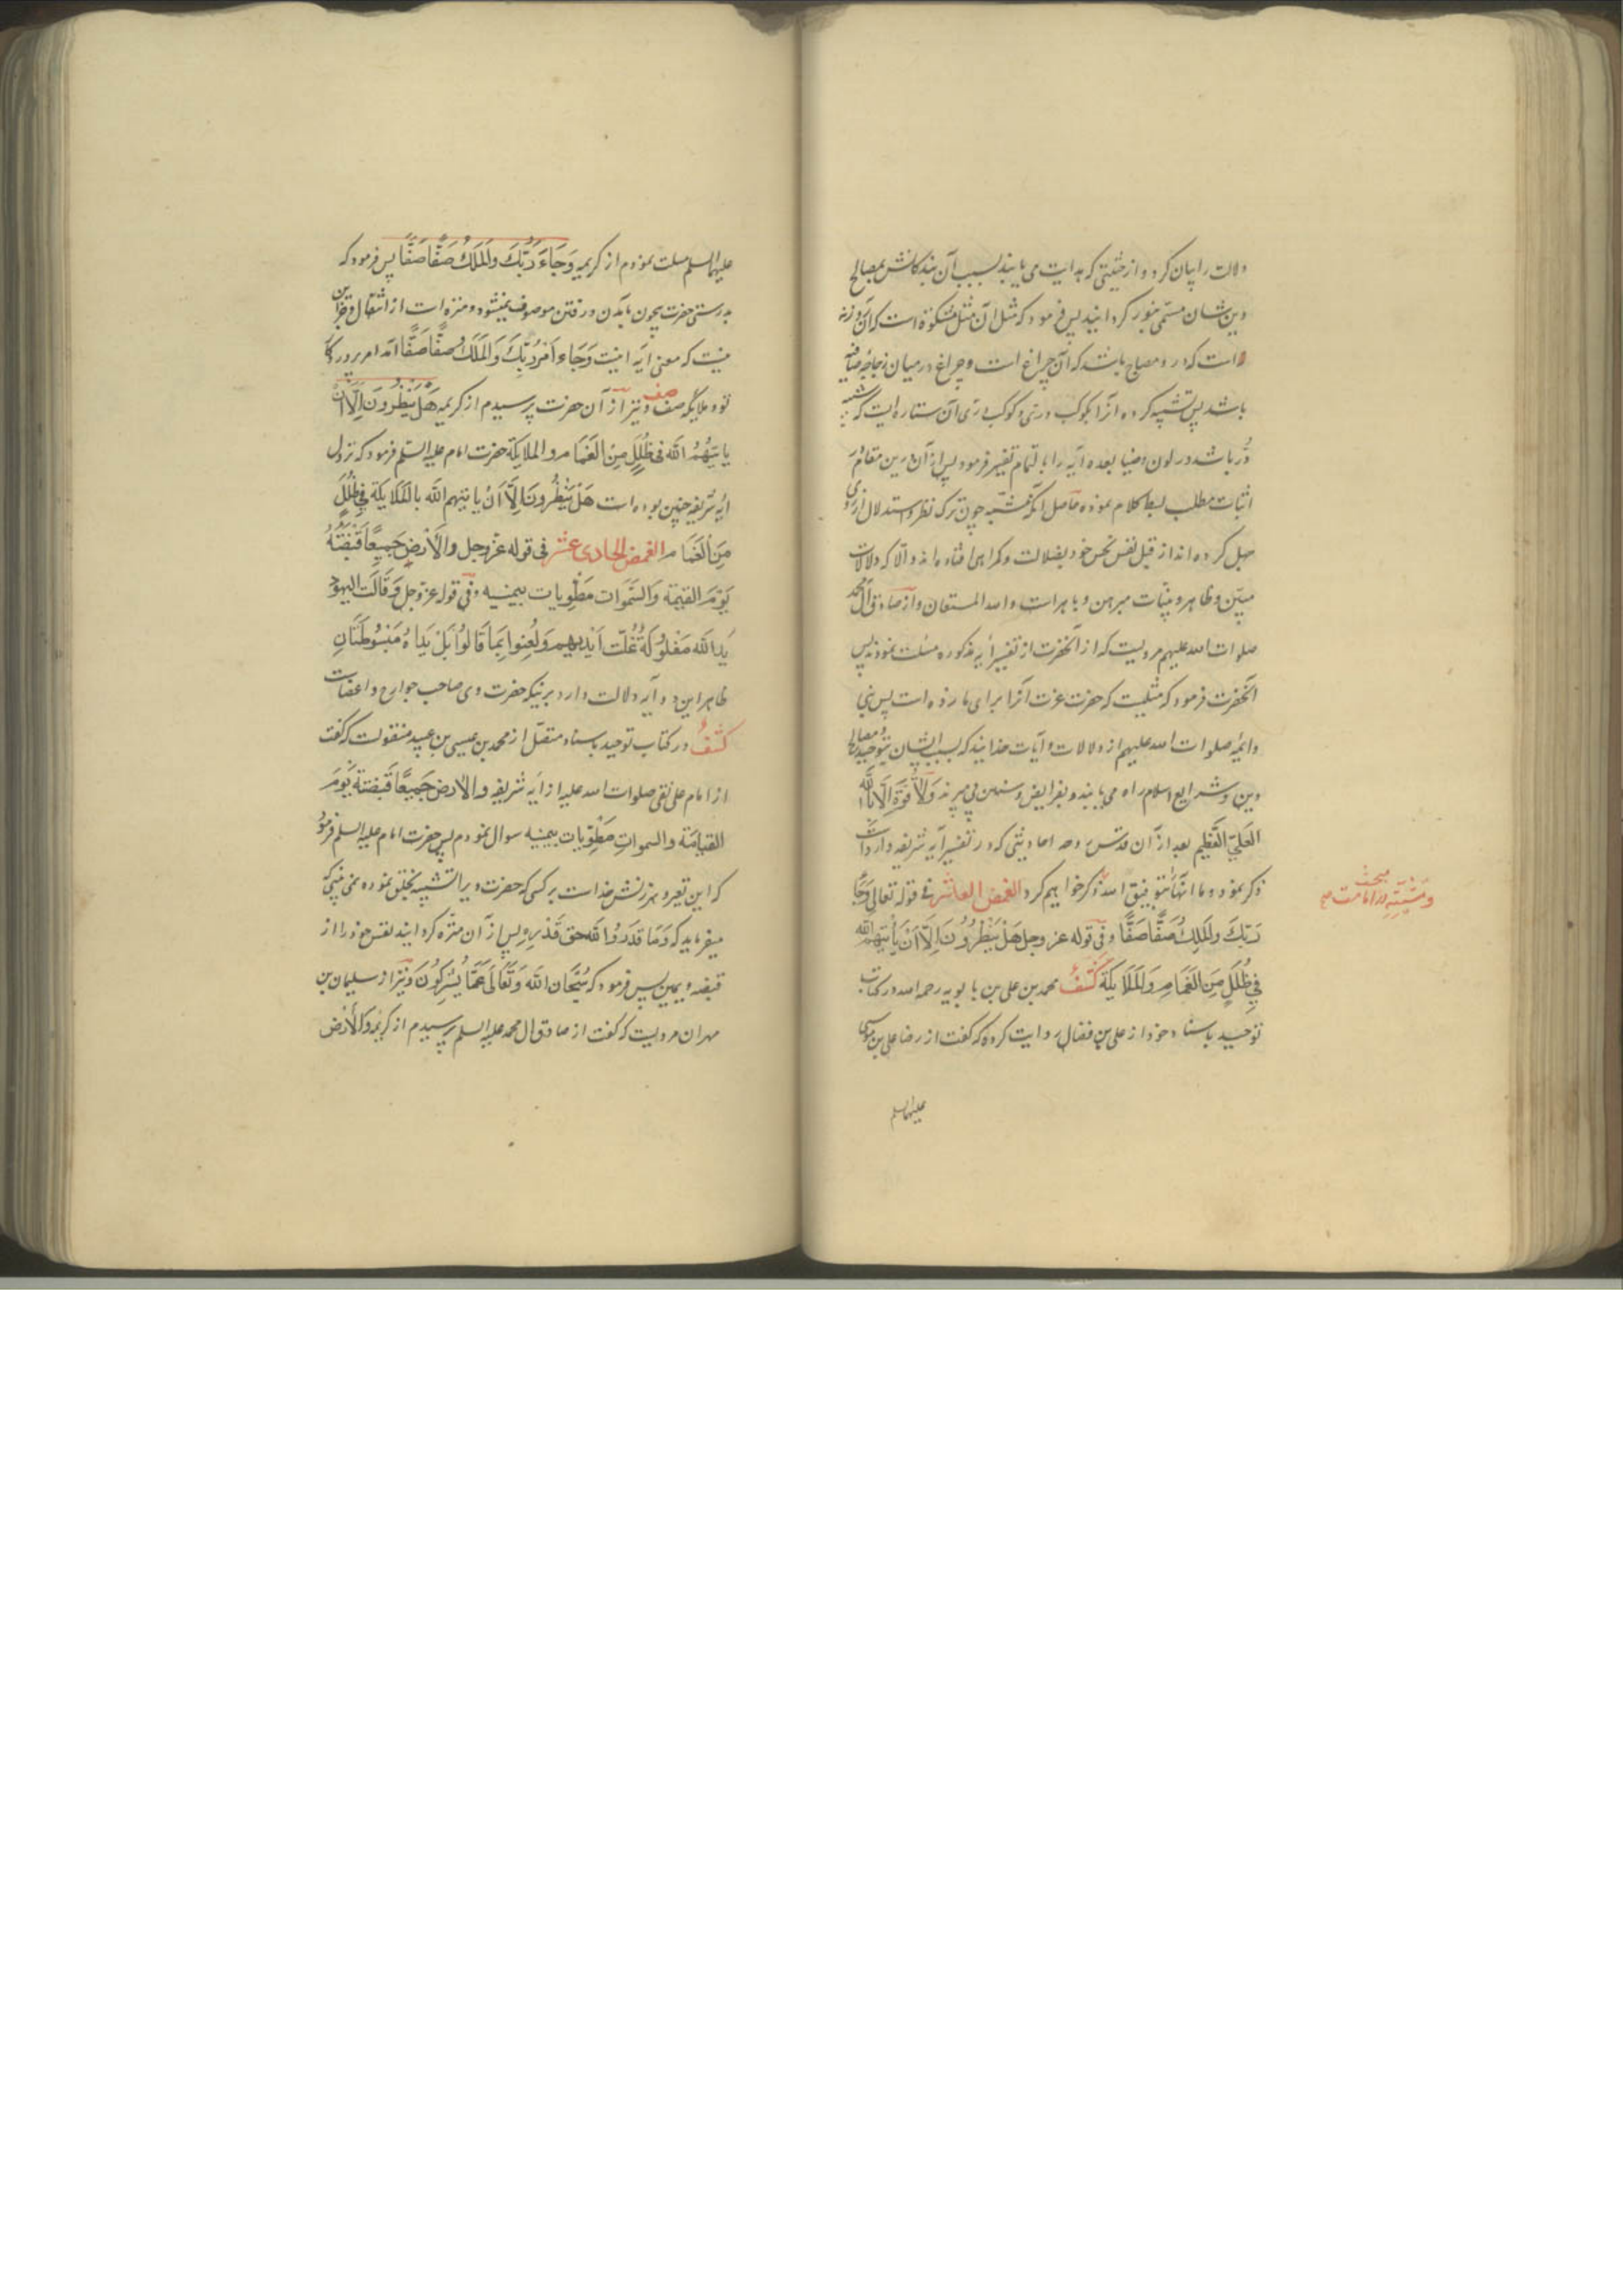 دلالت را بیان کرد و از حیثیتی که هدایت می یابند بسبب آن بندگانش بمصالح
دین شان مسمی بنور کردانید پس فرمود که مثل آن مثل مشکوة است که آن روزنه
است که در و مصباح باشد که آن چراغ است و چراغ در میان زجاجه صافیه
باشد پس تشبیه کرده آنرا بکوکب دری و کوکب دری آن ستاره ایست که شبیه
در باشد در لون و ضیا بعده آیه را بالتمام تفسیر فرمود پس از آن درین مقام
اثبات مطلب بسط کلام نموده حاصل آنکه مشبهه چون ترک نظر و استدلال از روی
جهل کرده اند از قبل نفس نحس خود بضلالت و کمراهی افتاده اند و الا که دلالات
مبین و ظاهر و بینات مبرهن و باهر است والله المستعان و از صادق آل محمد
صلوات الله علیهم مرویست که از آنحضرت از تفسیر آیه مذکوره مسلت نمودند پس
آنحضرت فرمود که مثلیست که حضرت عزت آنرا برای ما زده است پس نبی
و ائمه صلوات الله علیهم از دلالات و آیات خدایند که بسبب ایشان بتوحید و مصالح
دین و شرایع اسلام راه می یابند و بفرایض و سنن پی می برند وَلَا قُوَّةَ اِلَّا بِاللّٰهِ
العَلِیِّ العَظِیمِ بعد از آن قدس سره احادیثی که در تفسیر آیه شریفه وارد است
ذکر نموده و ما انها بتوفیق الله ذکر خواهیم کرد الغمض العاشر فی قوله تعالی وَجَاءَ
رَبُّكَ وَالمَلَكُ صَفًّا صَفًّا و فی قوله عز وجل هَلْ یَنْظُرُونَ اِلَّا اَنْ یَأْتِیَهُمُ اللّٰه
فِی ظُلَلٍ مِنَ الغَمَامِ وَالمَلَایِکَةُ کَشْفٌ محمد بن علی بن بابویه رحمه الله در کتاب
توحید باسناد خود از علی بن فضال روایت کرده که گفت از رضا علی بن موسی
علیهما السلم
مبحث
علیهما السلم مسلت نمودم از کریمه وَجَاءَ رَبُّكَ وَالمَلَكُ صَفًّا صَفًّا پس فرمود که
بدرستی حضرت بیچون بآمدن و رفتن موصوف نمیشود و منزه است از انتقال و جز این
نیست که معنی آیه اینست وَجَاءَ اَمْرُ رَبِّكَ وَالمَلَكُ صَفًّا صَفًّا آمد امر پروردگار
تو و ملایکه صف صف و نیز از آن حضرت پرسیدم از کریمه هَلْ یَنْظُرُونَ اِلَّا اَنْ
یاتِیَهُمُ اللّٰه فی ظُلَلٍ مِنَ الغَمَامِ و الملایکة حضرت امام علیه السلم فرمود که نزول
آیه شریفه چنین بوده است هَلْ یَنْظُرُونَ اِلَّا اَنْ یاتیهم اللّٰه بِالمَلَایِکَة فِی ظُلَلٍ
مِنَ الغَمَامِ الغمض الحادی عشر فی قوله عز وجل وَالاَرْضِ جَمِیعًا قَبْضَتُهُ
یَوْمَ القِیمَة وَالسَّمَوَات مَطْوِیات بیمینه و فی قوله عز وجل وَقَالَت الیهود
یَدُ اللّٰه مَغْلُولَةٌ غُلَّت اَیْدِیهِم وَلُعِنُوا بِمَا قَالُوا بَلْ یَدَاهُ مَبْسُوطَتَانِ
ظاهر این دو آیه دلالت دارد برینکه حضرت وی صاحب جوارح و اعضاست
کَشْفٌ در کتاب توحید باسناد متصل از محمد بن عیسی بن عبید منقولست که گفت
از امام علی نقی صلوات الله علیه از آیه شریفه والارض جَمِیعًا قَبضته یَوْمَ
القیامَة والسموات مَطْوِیّات بیمینه سوال نمودم پس حضرت امام علیه السلم فرمود
که این تعیر و سرزنش خداست بر کسی که حضرت ویرا تشبیه بخلق نموده نمی بینی که
میفرماید که وَمَا قَدَرُوا اللّٰه حَقَّ قَدْرِهِ پس از آن منزه کردانید نفس خود را از
قبضه و یمین پس فرمود که سُبْحَانَ اللّٰه وَتَعَالَی عَمَّا یُشْرِکُونَ و نیز از سلیمان بن
مهران مرویست که گفت از صادق آل محمد علیه السلم پرسیدم از کریمه وَالاَرْضُ